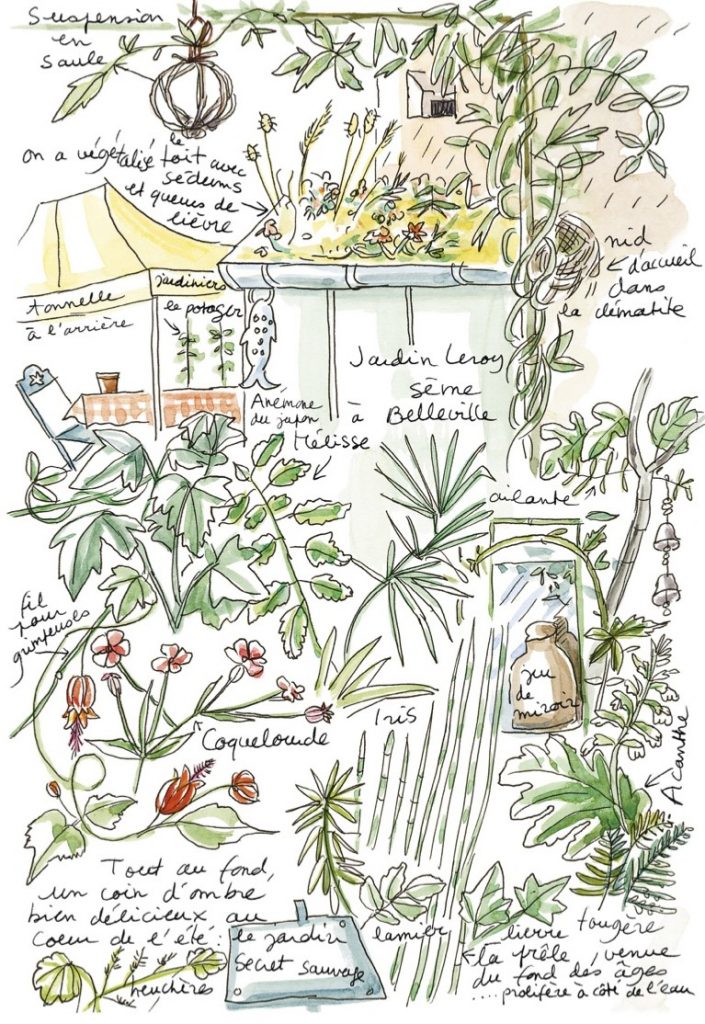 Suspension
en
saule
on a végétalisé le toit avec
sédums
et queues de
lièvre
nid
d'accueil
dans
la clématite
tonnelle
à l'arrière
jardiniers
le potager
Jardin Leroy
sème
à Belleville
Anémone
du japon
Mélisse
ailante
fil
pour
grimpeuses
jeu
de
miroir
Iris
Coquelourde
Acanthe
Tout au fond,
un coin d'ombre
bien délicieux au
coeur de l'été :
le jardin
secret sauvage
heuchères
lamier
lierre
fougère
la prêle, venue
du fond des âges
.... prolifère à côté de l'eau